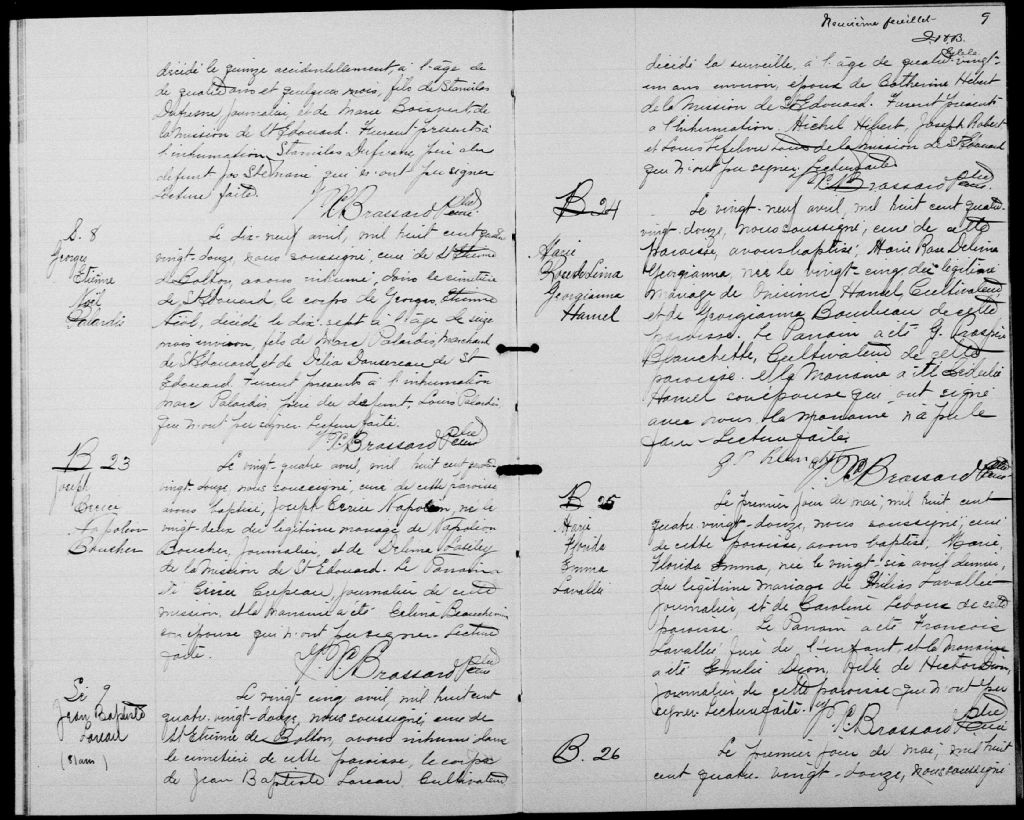 décédé le quinze accidentellement, à l'âge de
de quatre ans et quelques mois, fils de Stanilas
Dufresne, journalier, et de Marie Boisvert, de
la mission de St Edouard. Furent présents à
l'inhumation Stanilas Dufresne, père du
defunt, qui n'ont pu signer
Lecture faite.
Brassard Ptre Curé.
S. 8
Georges
Etienne
Noël
Palardis
Le dix-neuf avril, mil huit cent quatre
vingt-douze, nous soussigné, curé de St Etienne
de Bolton, avons inhumé, dans le cimetière
de St Edouard le corps de Georges, Etienne
Noël, décédé le dix-sept à l'âge de seize
mois environ, fils de Marc Palardis, Marchand
de St Edouard et de Délia Dansereau de St
Edouard Furent présents à l'inhumation
Marc Palardis, père du defunt, Louis Palardis
qui n'ont pu signer. Lecture faite.
Brassard Ptre Curé
B 23
Joseph
Napoléon
Boucher
Le vingt-quatre avril, mil huit cent quatre
vingt-douze, nous soussigné, curé de cette paroisse
avons baptisé, Joseph Napoléon, né le
vingt-deux du légitime mariage de Napoléon
Boucher, journalier, et de Delima
de la mission de St Edouard. Le Parrain
a été journalier de cette
mission. et la marraine a été Celina Beauchemin
son épouse qui n'ont pu signer. Lecture
faite.
Brassard Ptre Curé
S. 9
Jean Baptiste
Loreau
(81 ans)
Le vingt cinq avril, mil huit cent
quatre-vingt-douze, nous soussigné, curé de
St Etienne de Bolton, avons inhumé dans
le cimetière de cette paroisse, le corps
de Jean Baptiste Loreau, Cultivateur
Neuvième feuillet
9
décédé la surveille, à l'âge de quatre-vingt-
un ans environ, époux de Catherine Hébert
de la Mission de St Edouard. Furent présents
a l'inhumation Michel Hébert, Joseph Robert
et Louis Lefebvre tous de la mission de St Edouard
qui n'ont pu signer. Lecture faite
Brassard Ptre Curé.
B. 24
Marie
Rose de Lima
Georgianna
Hamel
Le vingt-neuf avril, mil huit cent quatre
vingt-douze, nous soussigné, curé de cette
Paroisse, avons baptisé, Marie Rose Delima
Georgianna, née le vingt-cinq du légitime
mariage de Onisime Hamel Cultivateur,
et de Georgianna de cette
paroisse. Le Parrain a été G. Prospère
Blanchette, Cultivateur de cette
paroisse. et la Marraine a été
Hamel son épouse qui ont signé
avec nous. la marraine n'a pu le
faire - Lecture faite.
Brassard Ptre Curé
B 25
Marie
Florida
Emma
Lavallée
Le premier jour de mai, mil huit cent
quatre vingt-douze, nous soussigné, curé
de cette paroisse, avons baptisé, Marie,
Florida Emma, née le vingt-six avril dernier,
du légitime mariage de Philias Lavallée
journalier, et de Caroline de cette
paroisse. Le Parrain a été François
Lavallée frère de l'enfant, et la Marraine
a été Emilie Dion, fille de Hector Dion,
journalier de cette paroisse qui n'ont pu
signer. Lecture faite.
Brassard Ptre Curé
B. 26
Le premier jour de mai, mil huit
cent quatre-vingt-douze, nous soussigné